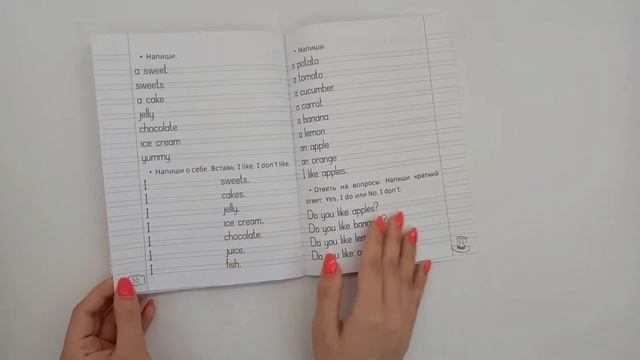 • Напиши.
a sweet
sweets
a cake
jelly
chocolate
ice cream
yummy
• Напиши о себе. Вставь: I like. I don't like.
I sweets.
I cakes.
I jelly.
I ice cream.
I chocolate.
I juice.
I fish.
• Напиши.
a potato
a tomato
a cucumber
a carrot
a banana
a lemon
an apple
an orange
I like apples.
• Ответь на вопросы. Напиши краткий
ответ: Yes, I do или No, I don't.
Do you like apples?
Do you like
Do you like
Do you like